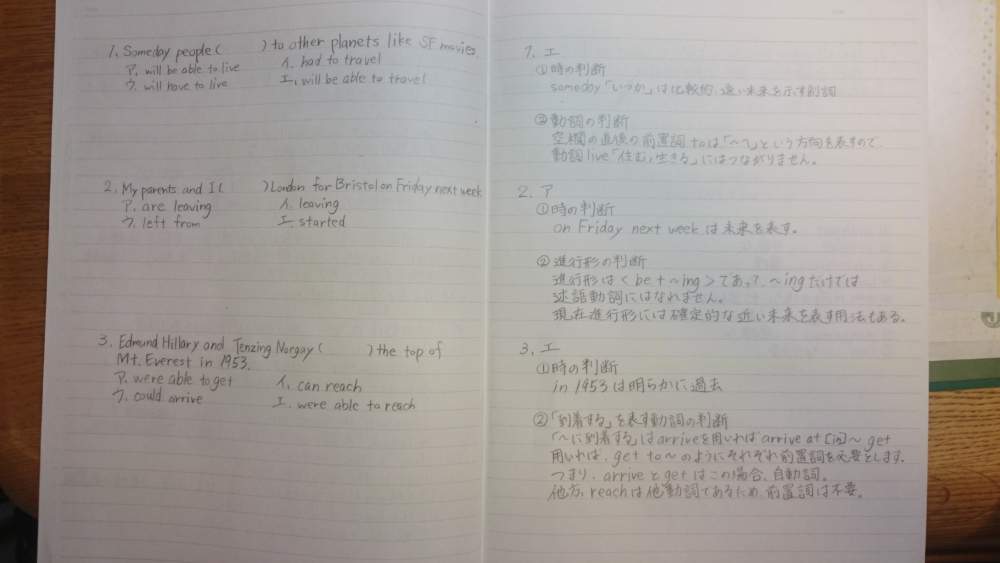 1. Someday people ( ) to other planets like SF movies.
ア. will be able to live イ. had to travel
ウ. will have to live エ. will be able to travel
2. My parents and I ( ) London for Bristol on Friday next week
ア. are leaving イ. leaving
ウ. left from エ. started
3. Edmund Hillary and Tenzing Norgay ( ) the top of
Mt. Everest in 1953.
ア. were able to get イ. can reach
ウ. could arrive エ. were able to reach
1. エ
①時の判断
someday「いつか」は比較的、遠い未来を示す副詞
②動詞の判断
空欄の直後の前置詞toは「~へ」という方向を表すので、
動詞live「住む,生きる」にはつながりません。
2. ア
①時の判断
on Friday next week は未来を表す。
②進行形の判断
進行形は<be+~ing>であって、~ingだけでは
述語動詞にはなれません。
現在進行形には確定的な近い未来を表す用法もある。
3. エ
①時の判断
in 1953 は明らかに過去
②「到着する」を表す動詞の判断
「~に到着する」はarriveを用いれば arrive at [in]~ get
用いれば、get to~のようにそれぞれ前置詞を必要とします。
つまり、arriveとgetはこの場合、自動詞。
他方、reachは他動詞であるため、前置詞は不要。